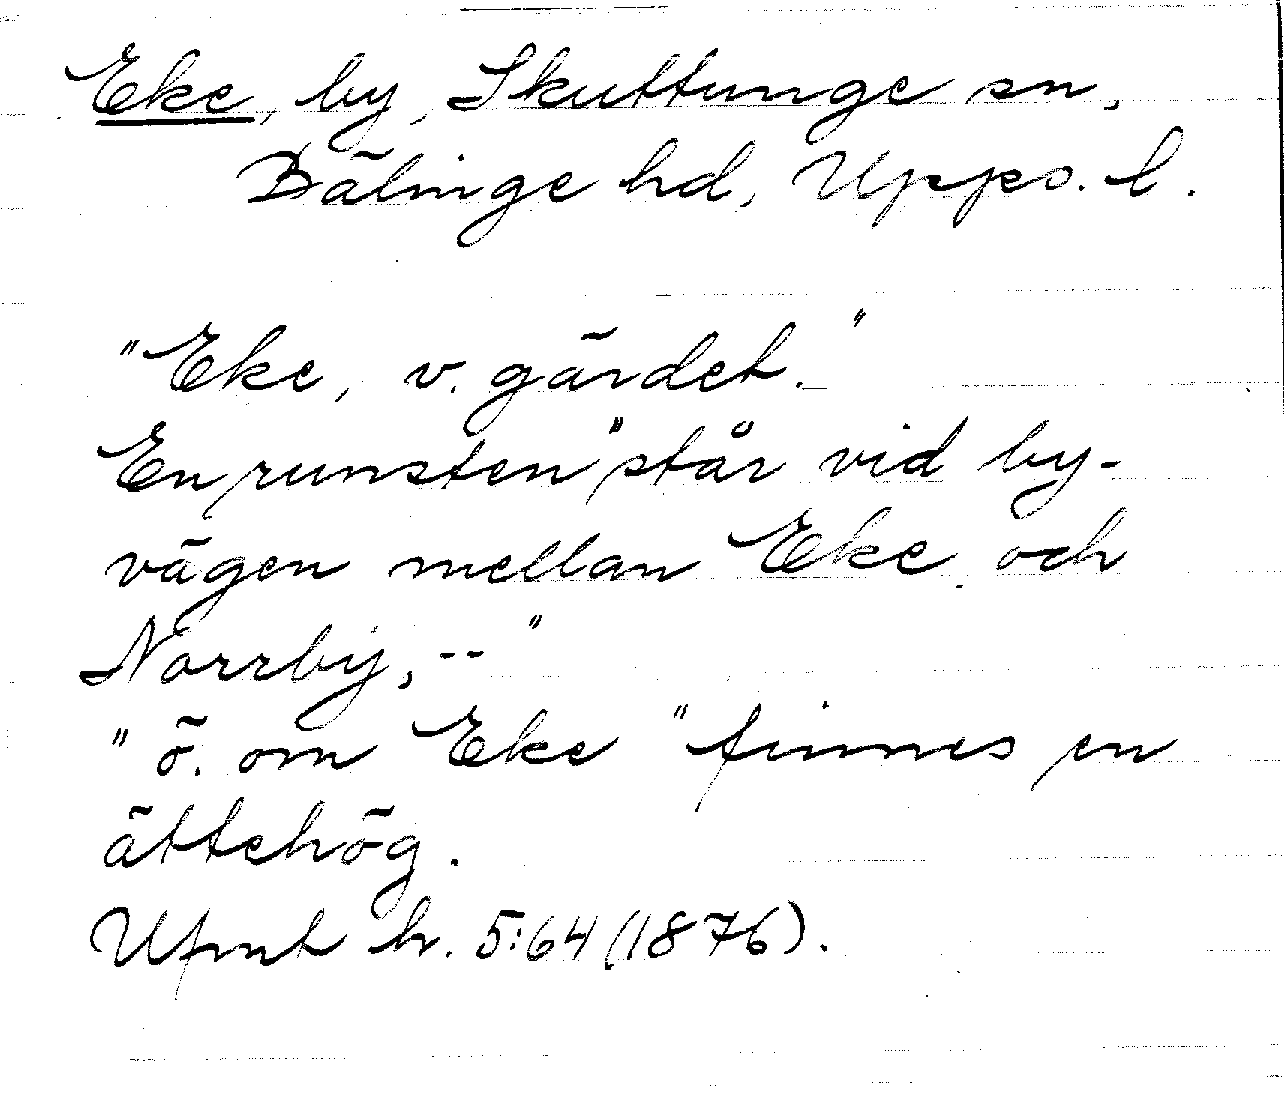 Eke, by, Skuttunge sn,
Bälinge hd, Upps. l.
"Eke, v. gärdet."
En runsten "står vid by-
vägen mellan Eke och
Norrby, -- "
"ö. om Eke" finnes en
ättehög.
Ufmt h. 5:64 (1876).